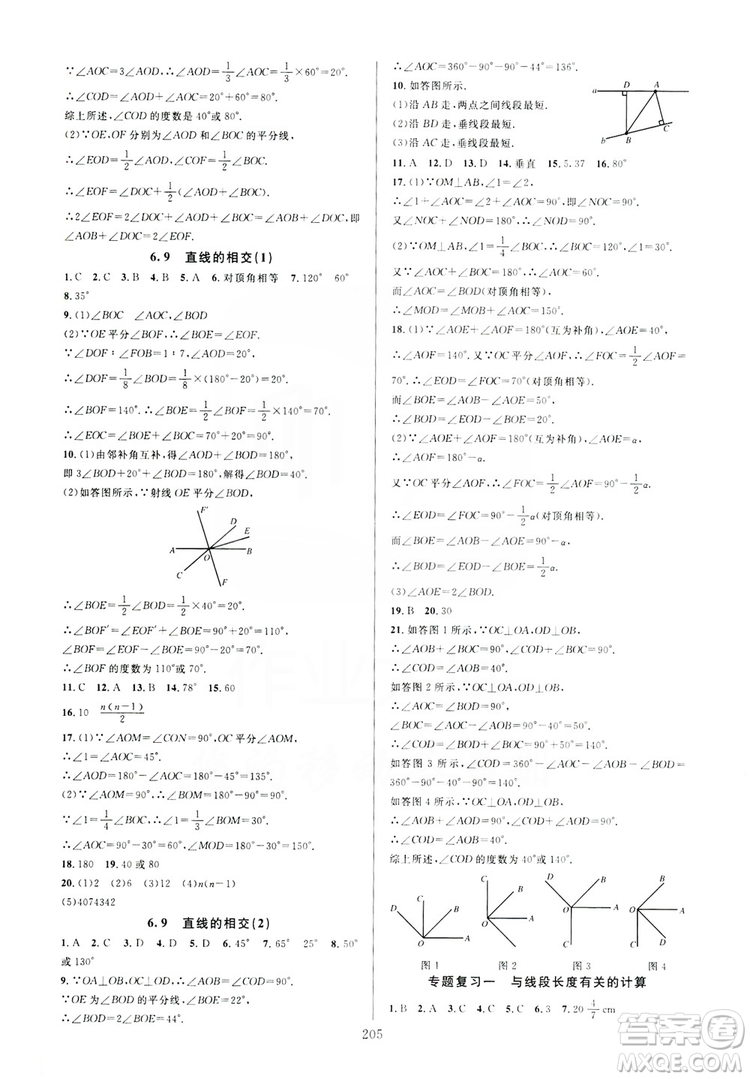 ∵∠AOC=3∠AOD,∴∠AOD=$\frac{1}{3}$∠AOC=$\frac{1}{3}$×60°=20°.
∴∠COD=∠AOC+∠AOD=60°+20°=80°.
综上所述,∠COD的度数是40°或80°.
(2)∵OE,OF分别为∠AOD和∠BOC的平分线,
∴∠EOD=$\frac{1}{2}$∠AOD,∠COF=$\frac{1}{2}$∠BOC.
∴∠EOF=$\frac{1}{2}$∠AOD+$\frac{1}{2}$∠BOC+∠COD.
∴2∠EOF=∠AOD+∠BOC+∠COD+∠COD,即
∠AOB+∠COD=2∠EOF.
6.9 直线的相交(1)
1.C 2.C 3.A 4.B 5.A 6.对顶角相等 7.120° 60°
8.35°
9.(1)∠BOC ∠AOC,∠BOD
(2)∵OE平分∠BOF,∴∠BOE=∠EOF.
∵∠DOF:∠FOB=1:7,∠AOC=∠BOD,
∴∠DOF=$\frac{1}{8}$∠BOD=$\frac{1}{8}$×(180°-20°)=20°.
∴∠BOF=140°.∴∠BOE=$\frac{1}{2}$∠BOF=$\frac{1}{2}$×140°=70°.
∴∠EOC=∠BOC+∠BOE=70°+20°=90°.
10.(1)由邻补角互补,得∠AOD+∠BOD=180°,
即3∠BOD+20°+∠BOD=180°,解得∠BOD=40°.
(2)如答图所示,∵射线OE平分∠BOD,
F' D E A O B C F
∴∠BOE=$\frac{1}{2}$∠BOD=$\frac{1}{2}$×40°=20°.
∴∠BOF'=∠EOF'+∠BOE=90°+20°=110°,
∠BOF=∠EOF-∠BOE=90°-20°=70°.
∴∠BOF的度数为110°或70°.
11.C 12.A 13.B 14.78° 15.60
16.10 $\frac{n(n-1)}{2}$
17.(1)∵∠AOM=∠CON=90°,OC平分∠AOM,
∴∠1=∠AOC=45°.
∴∠AOD=180°-∠AOC=180°-45°=135°.
(2)∵∠AOM=90°,∴∠BOM=180°-90°=90°.
∵∠1=$\frac{1}{4}$∠BOC,∴∠1=$\frac{1}{3}$∠BOM=30°.
∴∠AOC=90°-30°=60°,∠MOD=180°-30°=150°.
18.180 19.40或80
20.(1)2 (2)6 (3)12 (4)n(n-1)
(5)4074342
6.9 直线的相交(2)
1.A 2.B 3.D 4.C 5.D 6.45° 7.65° 25° 8.50°
或130°
9.∵OA⊥OB,∴∠AOB=90°.
∵∠AOB=∠BOE+∠AOE,∠AOE=68°,
∴∠BOE=22°.∴∠BOD=2∠BOE=44°.
又∵OC⊥OD,∴∠COD=90°.
∴∠AOC=360°-90°-90°-44°=136°.
10.如答图所示.
(1)沿AB走,两点之间线段最短.
(2)沿BD走,垂线段最短.
(3)沿AC走,垂线段最短.
a D A b B C
11.A 12.D 13.D 14.垂直 15.5.37 16.80°
17.(1)∵OM⊥AB,∠1=∠2,
∴∠1+∠AOC=∠2+∠AOC=90°,即∠CON=90°.
又∠NOC+∠NOD=180°,∴∠NOD=90°.
(2)∵OM⊥AB,∠1=$\frac{1}{4}$∠BOC,∴∠1=30°,∠BOC=120°.
又∠AOC+∠BOC=180°,∴∠AOC=60°.
而∠AOC=∠BOD(对顶角相等),
∴∠MOD=∠MOB+∠BOD=90°+∠AOC=150°.
18.(1)∵∠AOE+∠AOF=180°(互为补角),∠AOE=40°,
∴∠AOF=140°.又∵OC平分∠AOF,∴∠FOC=$\frac{1}{2}$∠AOF=
70°.∴∠EOD=∠FOC=70°(对顶角相等).
而∠BOE=∠AOB-∠AOE=50°,
∴∠BOD=∠EOD-∠BOE=20°.
(2)∵∠AOE+∠AOF=180°(互为补角),∠AOE=α,
∴∠AOF=180°-α.
又∵OC平分∠AOF,∴∠FOC=$\frac{1}{2}$∠AOF=90°-$\frac{1}{2}$α.
∴∠EOD=∠FOC=90°-$\frac{1}{2}$α(对顶角相等).
而∠BOE=∠AOB-∠AOE=90°-α,
∴∠BOD=∠EOD-∠BOE=$\frac{1}{2}$α.
(3)∠AOE=2∠BOD.
19.B 20.30
21.如答图1所示,∵OC⊥OA,OD⊥OB,
∴∠AOB+∠BOC=∠COD+∠BOC=90°.
∴∠COD=∠AOB=40°.
如答图2所示,∵OC⊥OA,OD⊥OB,
∴∠AOC=∠BOD=90°.
∴∠COD=180°-∠AOB=180°-40°=140°.
如答图3所示,∵OC⊥OA,OD⊥OB,
∴∠AOC=∠BOD=90°.∴∠COD=360°-∠BOD-∠AOC-∠AOB=
360°-90°-90°-40°=140°.
如答图4所示,∵OC⊥OA,OD⊥OB,
∴∠AOC=∠BOD=90°.∴∠COD=∠AOB=40°.
综上所述,∠COD的度数为40°或140°.
C B D O A
C B O A D
D B O A C
D B O A C
图1 图2 图3 图4
专题复习一 与线段长度有关的计算
1.B 2.A 3.D 4.C 5.C 6.3 7.20 $\frac{4}{7}$ cm
205
答案圈
MXQE.COM